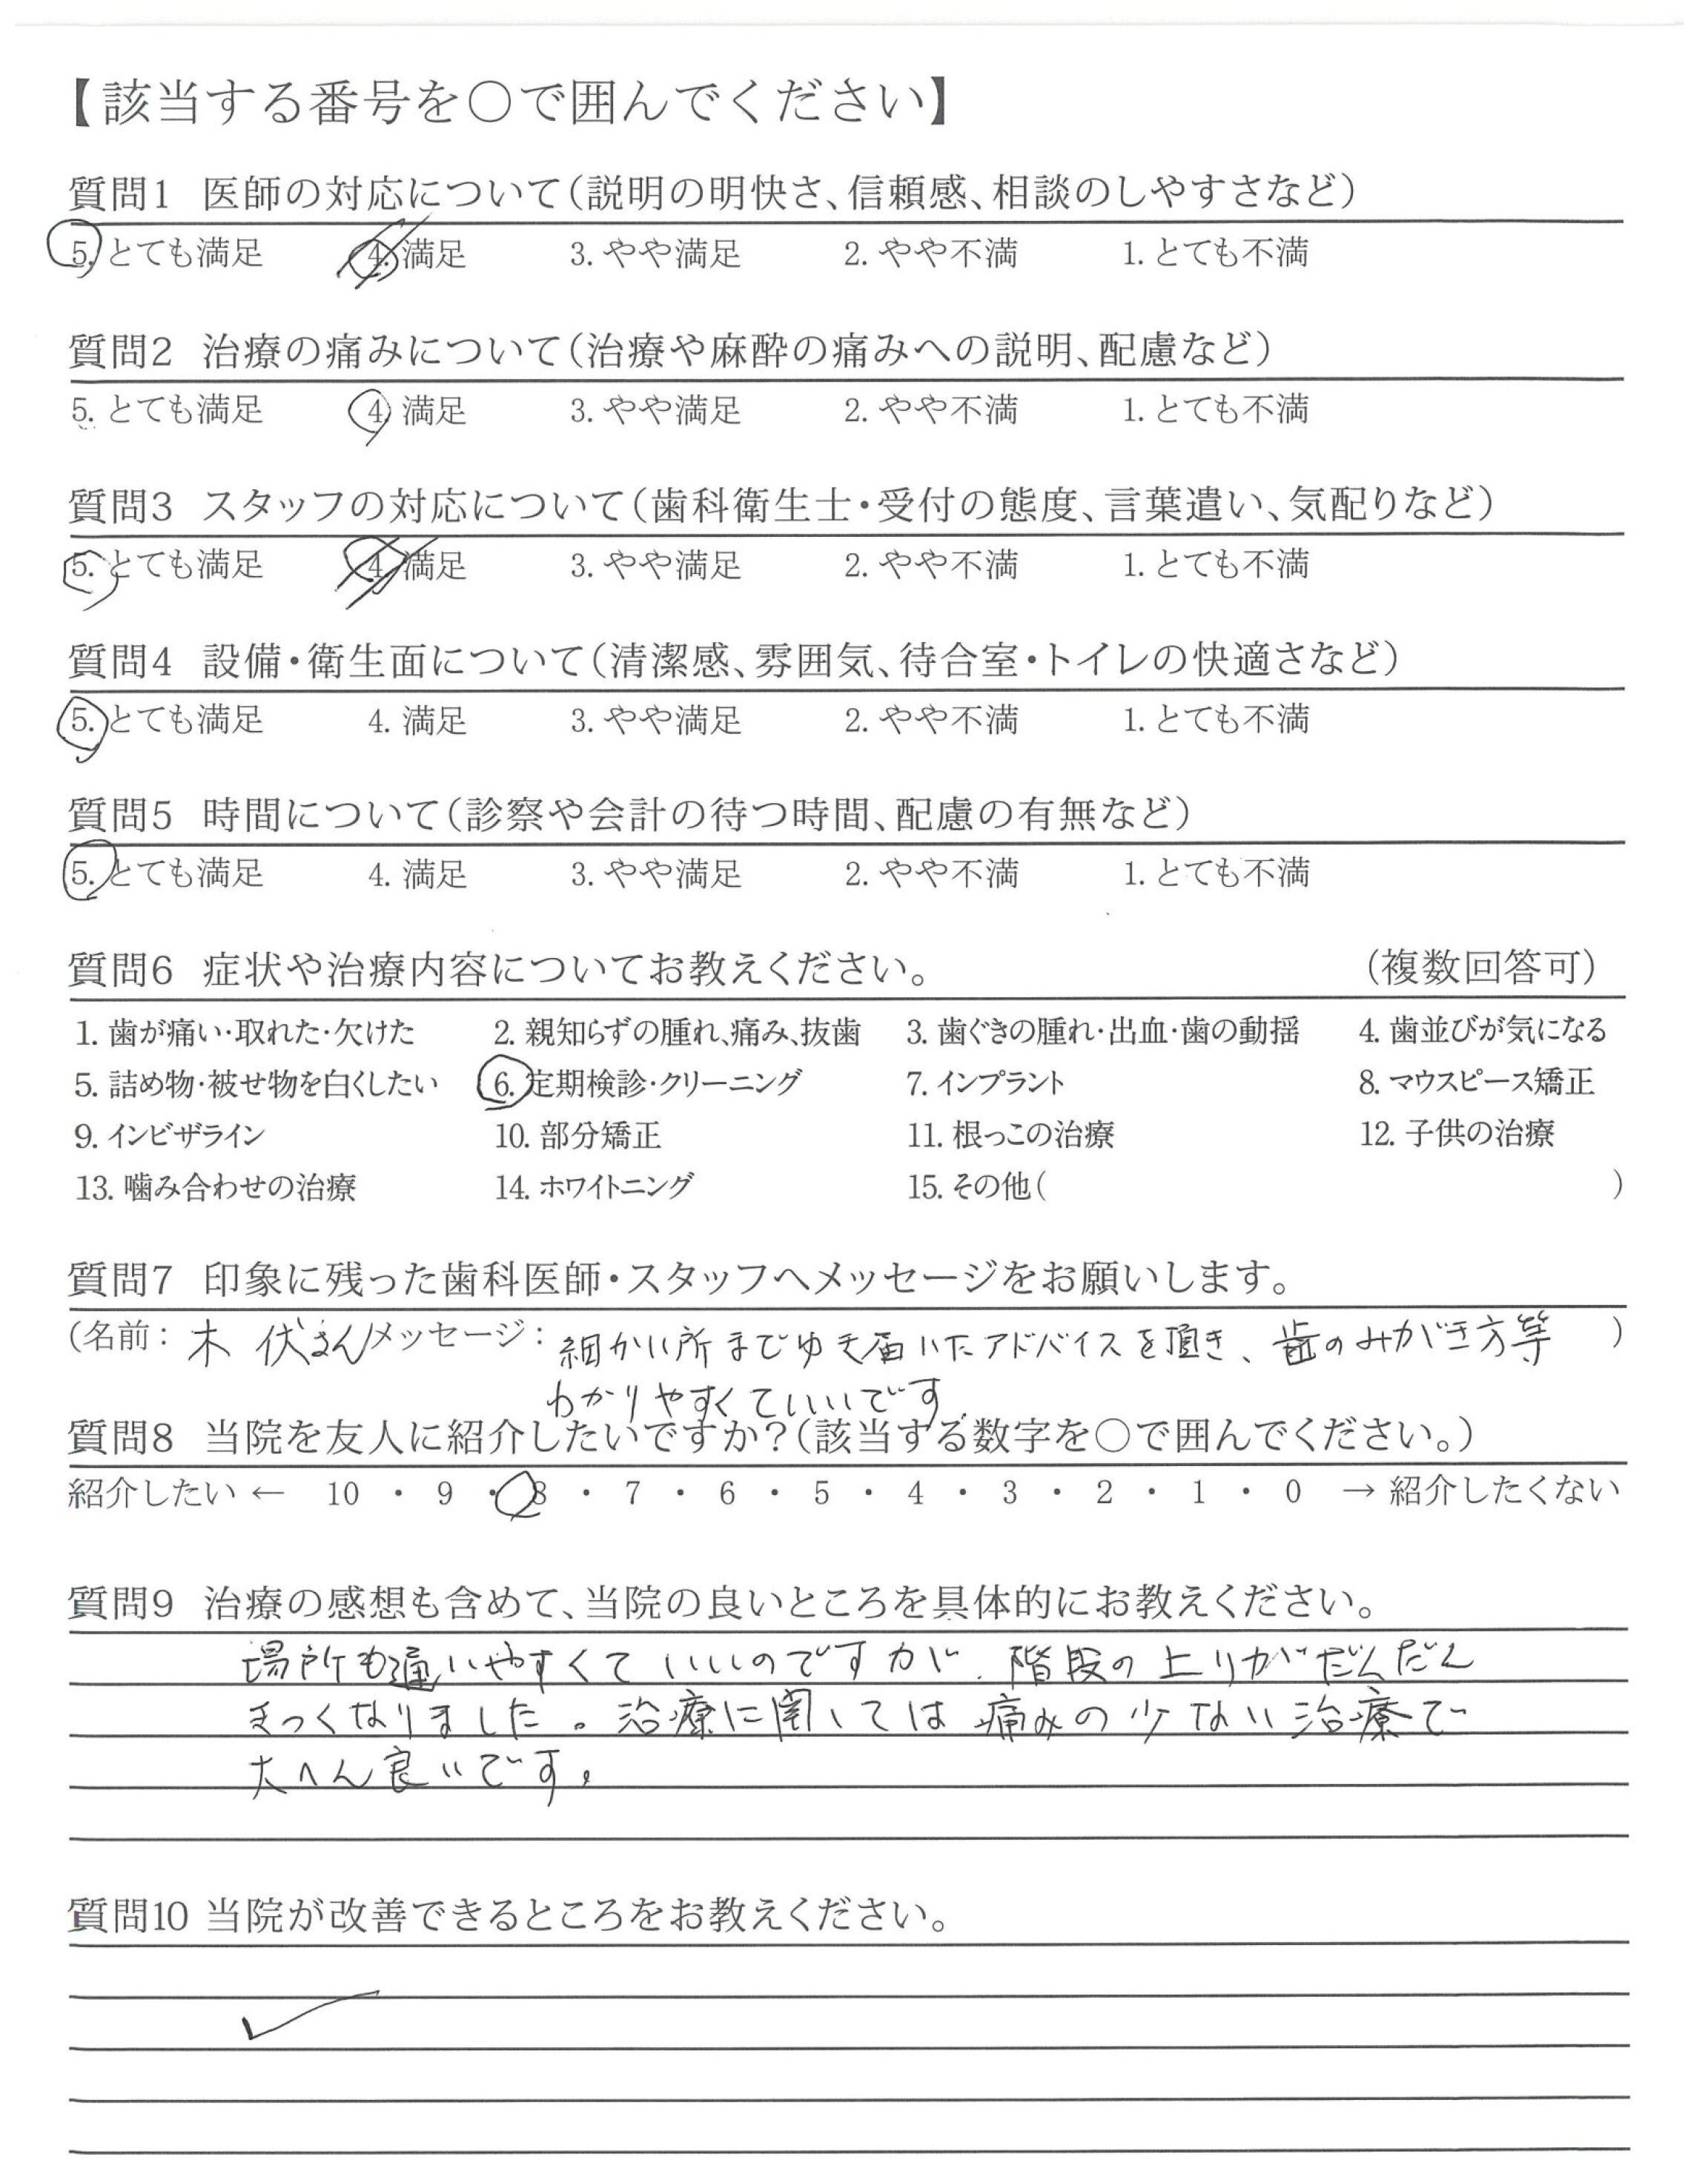 【該当する番号を〇で囲んでください】
質問1 医師の対応について（説明の明快さ、信頼感、相談のしやすさなど）
5. とても満足 4. 満足 3. やや満足 2. やや不満 1. とても不満
質問2 治療の痛みについて（治療や麻酔の痛みへの説明、配慮など）
5. とても満足 4. 満足 3. やや満足 2. やや不満 1. とても不満
質問3 スタッフの対応について（歯科衛生士・受付の態度、言葉遣い、気配りなど）
5. とても満足 4. 満足 3. やや満足 2. やや不満 1. とても不満
質問4 設備・衛生面について（清潔感、雰囲気、待合室・トイレの快適さなど）
5. とても満足 4. 満足 3. やや満足 2. やや不満 1. とても不満
質問5 時間について（診察や会計の待つ時間、配慮の有無など）
5. とても満足 4. 満足 3. やや満足 2. やや不満 1. とても不満
質問6 症状や治療内容についてお教えください。 （複数回答可）
1. 歯が痛い・取れた・欠けた 2. 親知らずの腫れ、痛み、抜歯 3. 歯ぐきの腫れ・出血・歯の動揺 4. 歯並びが気になる
5. 詰め物・被せ物を白くしたい 6. 定期検診・クリーニング 7. インプラント 8. マウスピース矯正
9. インビザライン 10. 部分矯正 11. 根っこの治療 12. 子供の治療
13. 噛み合わせの治療 14. ホワイトニング 15. その他（ ）
質問7 印象に残った歯科医師・スタッフへメッセージをお願いします。
（名前：木伏さん メッセージ：細かい所までゆき届いたアドバイスを頂き、歯のみがき方等 ）
わかりやすくていいです.
質問8 当院を友人に紹介したいですか？（該当する数字を〇で囲んでください。）
紹介したい ← 10 ・ 9 ・ 8 ・ 7 ・ 6 ・ 5 ・ 4 ・ 3 ・ 2 ・ 1 ・ 0 → 紹介したくない
質問9 治療の感想も含めて、当院の良いところを具体的にお教えください。
場所も通いやすくていいのですが、階段の上りがだんだん
きつくなりました。治療に関しては痛みの少ない治療で
大へん良いです。
質問10 当院が改善できるところをお教えください。